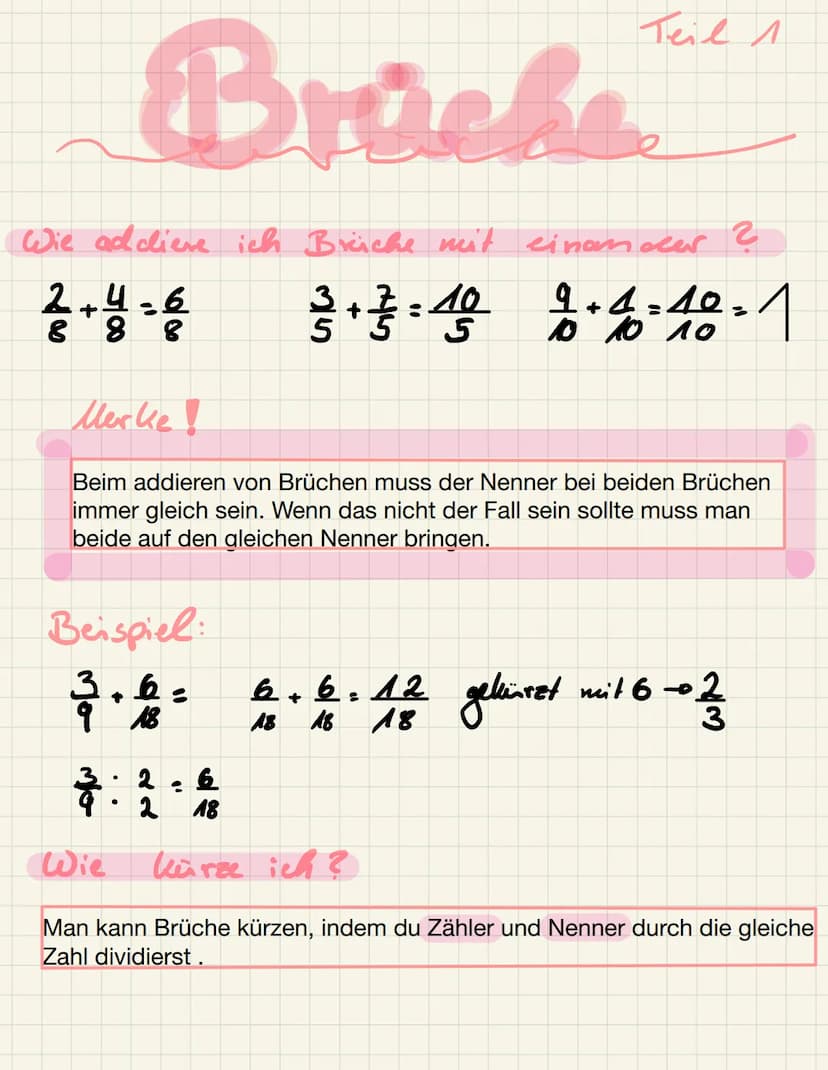 Teil 1
Brüche
Brüche
Wie addiere ich Brüche mit einander ?
2/8 + 4/8 = 6/8 3/5 + 7/5 = 10/5 9/10 + 1/10 = 10/10 = 1
Merke !
Beim addieren von Brüchen muss der Nenner bei beiden Brüchen
immer gleich sein. Wenn das nicht der Fall sein sollte muss man
beide auf den gleichen Nenner bringen.
Beispiel:
3/9 + 6/18 = 6/18 + 6/18 = 12/18 gekürzt mit 6 → 2/3
3/9 : 2/2 = 6/18
Wie kürze ich ?
Man kann Brüche kürzen, indem du Zähler und Nenner durch die gleiche
Zahl dividierst .